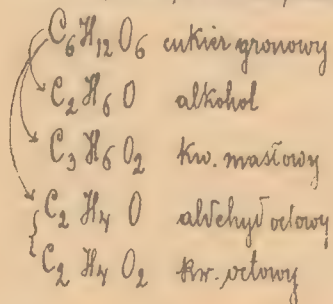 C₆H₁₂O₆ cukier gronowy
C₂H₆O alkohol
C₃H₆O₂ kw. masłowy
C₂H₄O aldehyd octowy
C₂H₄O₂ kw. octowy